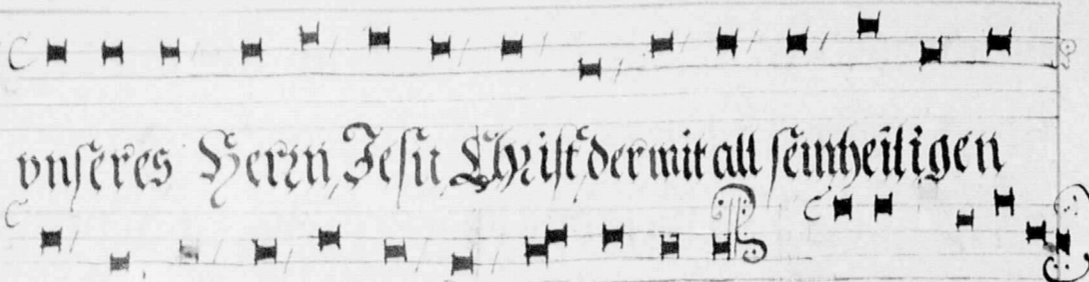 vnseres Herrn, Jesu Christ der mit all sein heiligen